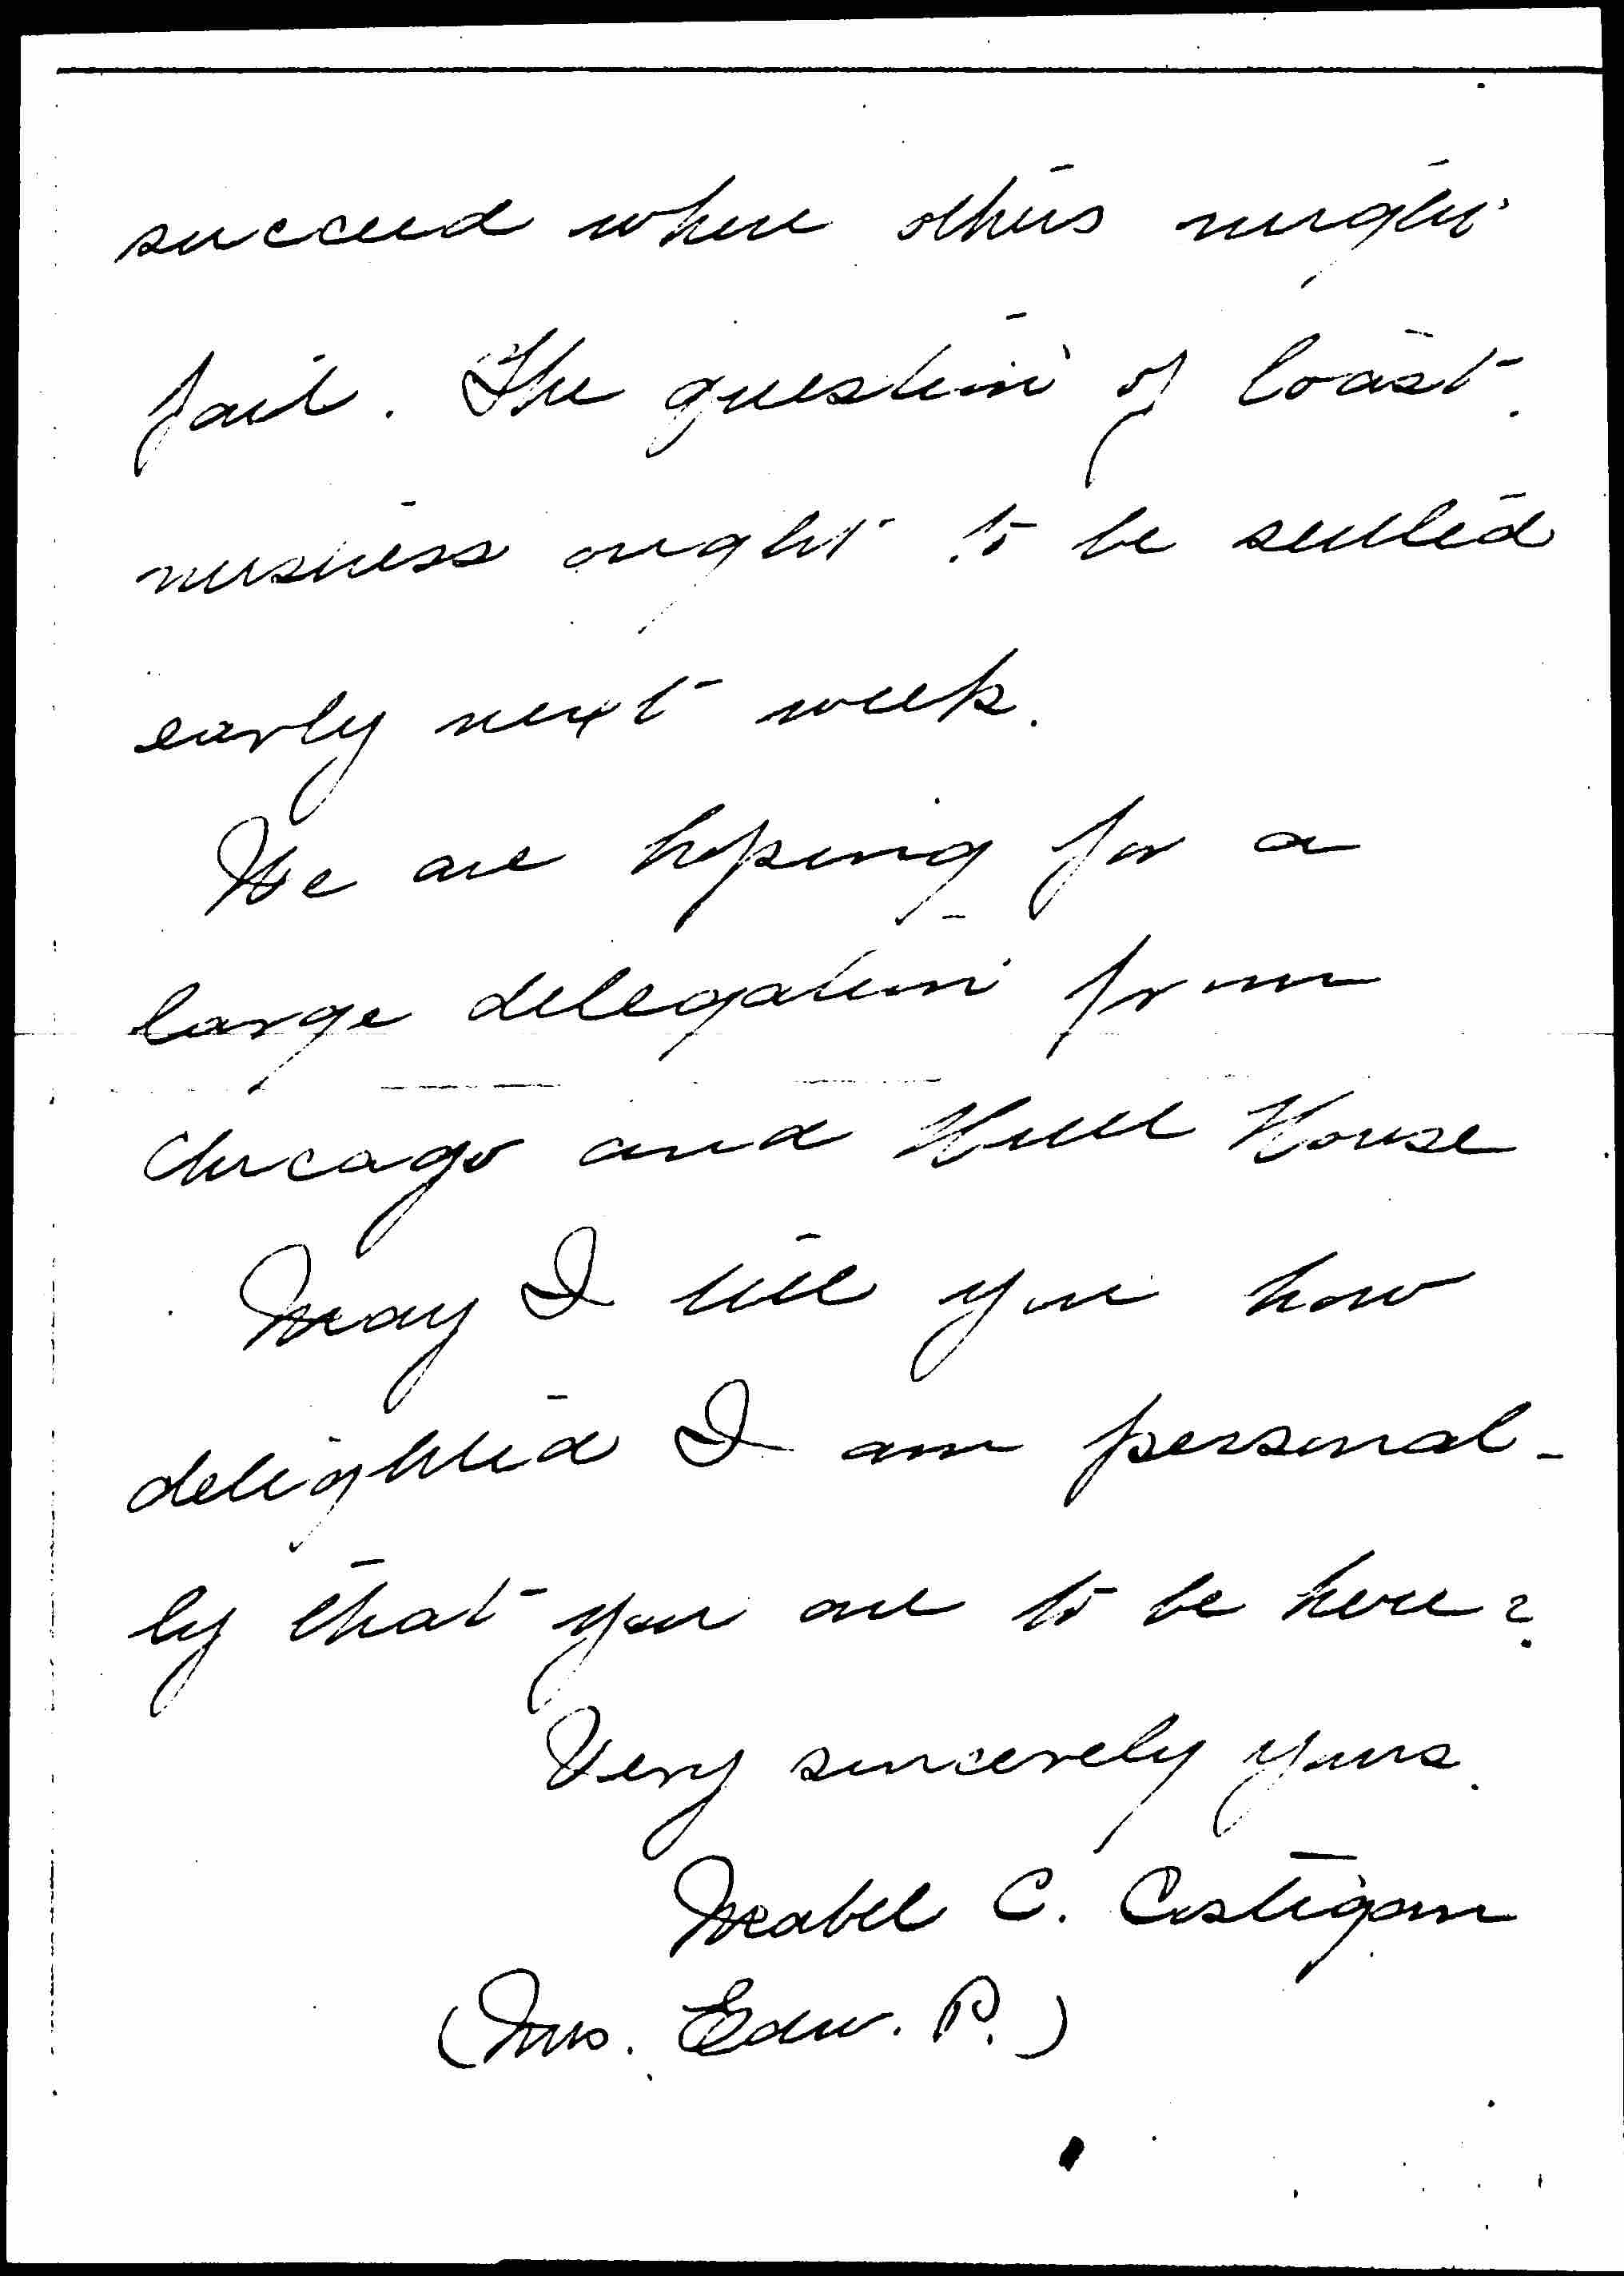 succeed where others might
fail. The question of toast
mistress ought to be settled
early next week.
We are hoping for a
large delegation from
Chicago and Hull House
May I tell you how
delighted I am personal-
ly that you are to be here?
Very sincerely yours.
Mabel C. Costigan
(Mrs. Edw. P.)